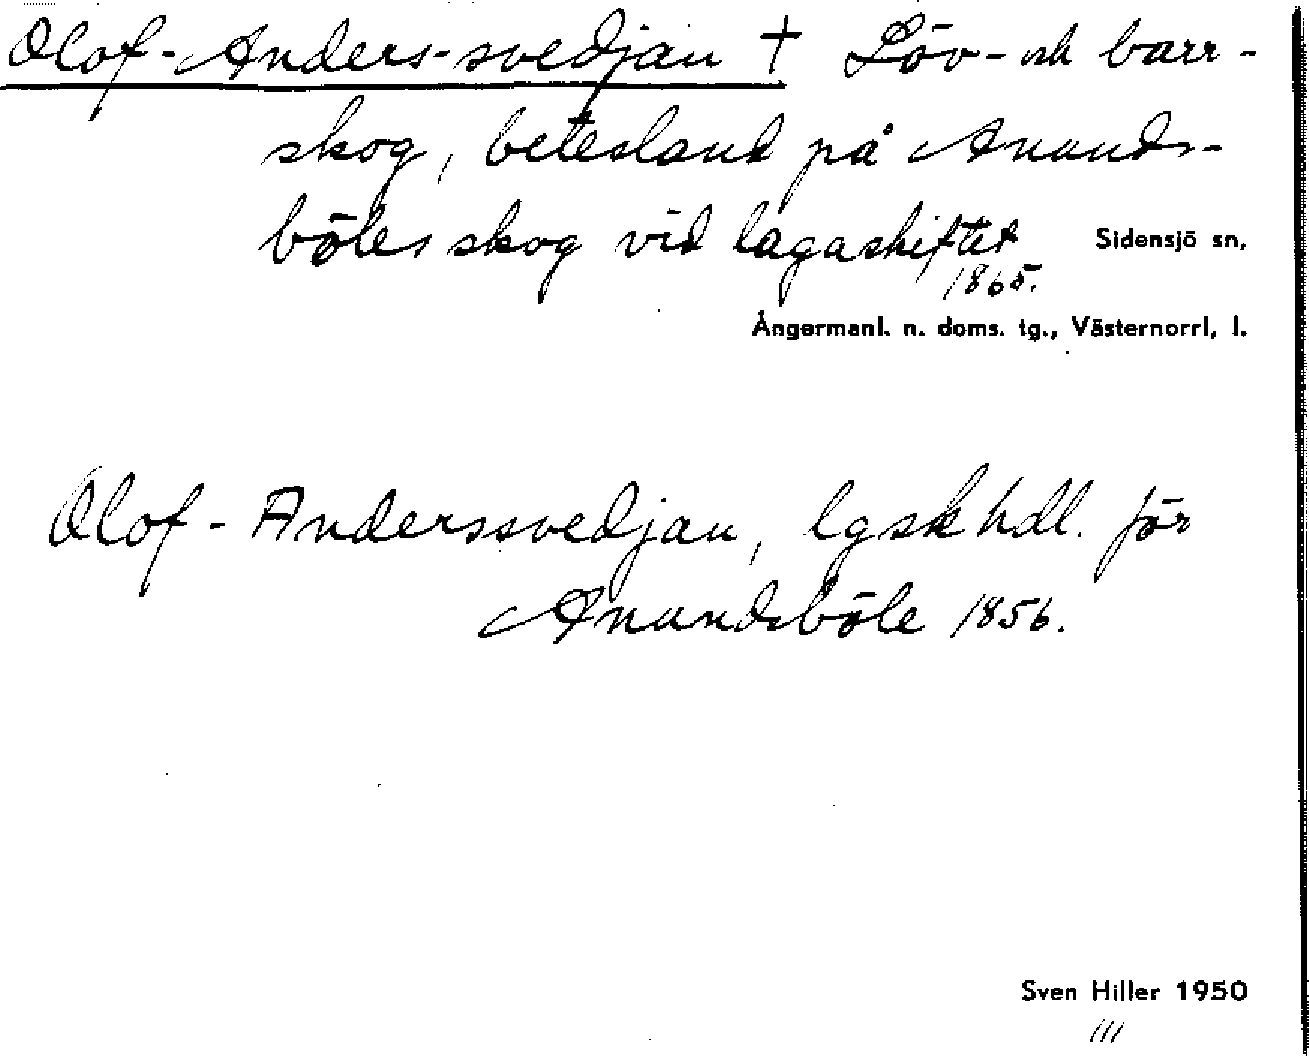 Olof-Anders-svedjan + Löv- och barr-
skog, betesland på Anunds-
böles skog vid lagaskiftet
1865.
Sidensjö sn,
Ångermanl. n. doms. tg., Västernorrl, l.
Olof-Anderssvedjan, lgskhdl. för
Anundsböle 1856.
Sven Hiller 1950
///